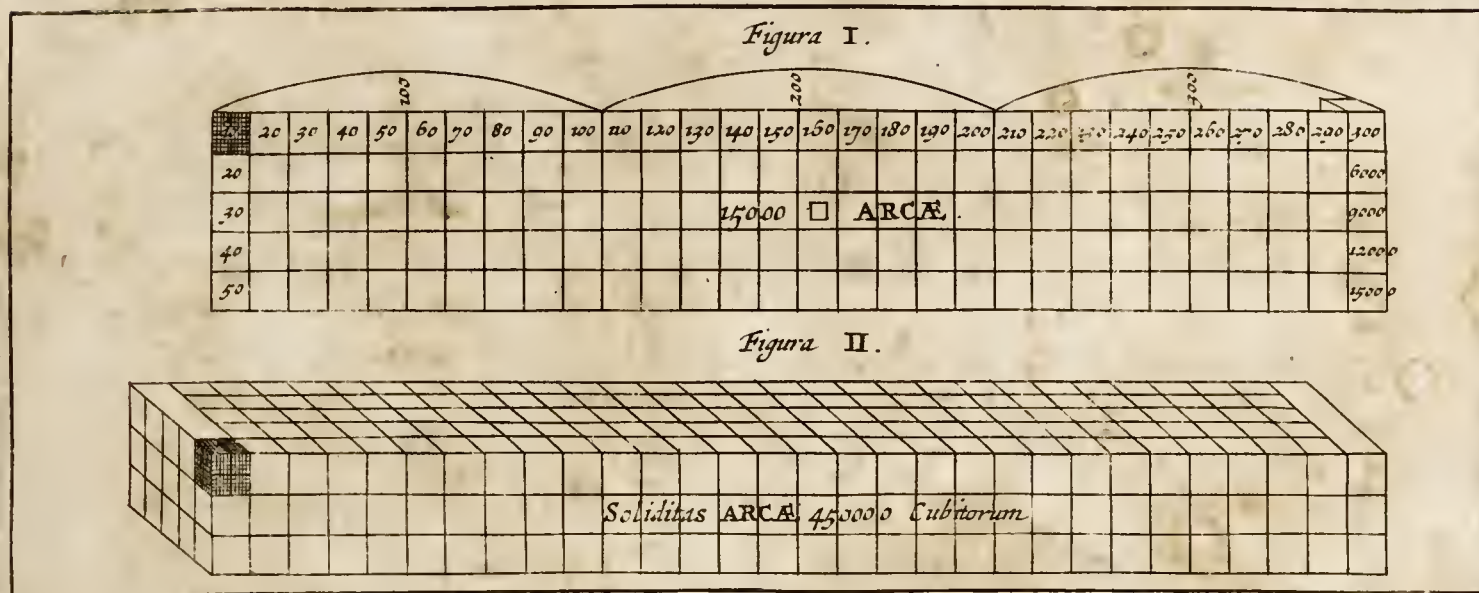 Figura I.
100 200 300
10 20 30 40 50 60 70 80 90 100 110 120 130 140 150 160 170 180 190 200 210 220 230 240 250 260 270 280 290 300
20 6000
30 15000 □ ARCÆ. 9000
40 12000
50 15000
Figura II.
Soliditas ARCÆ 450000 Cubitorum